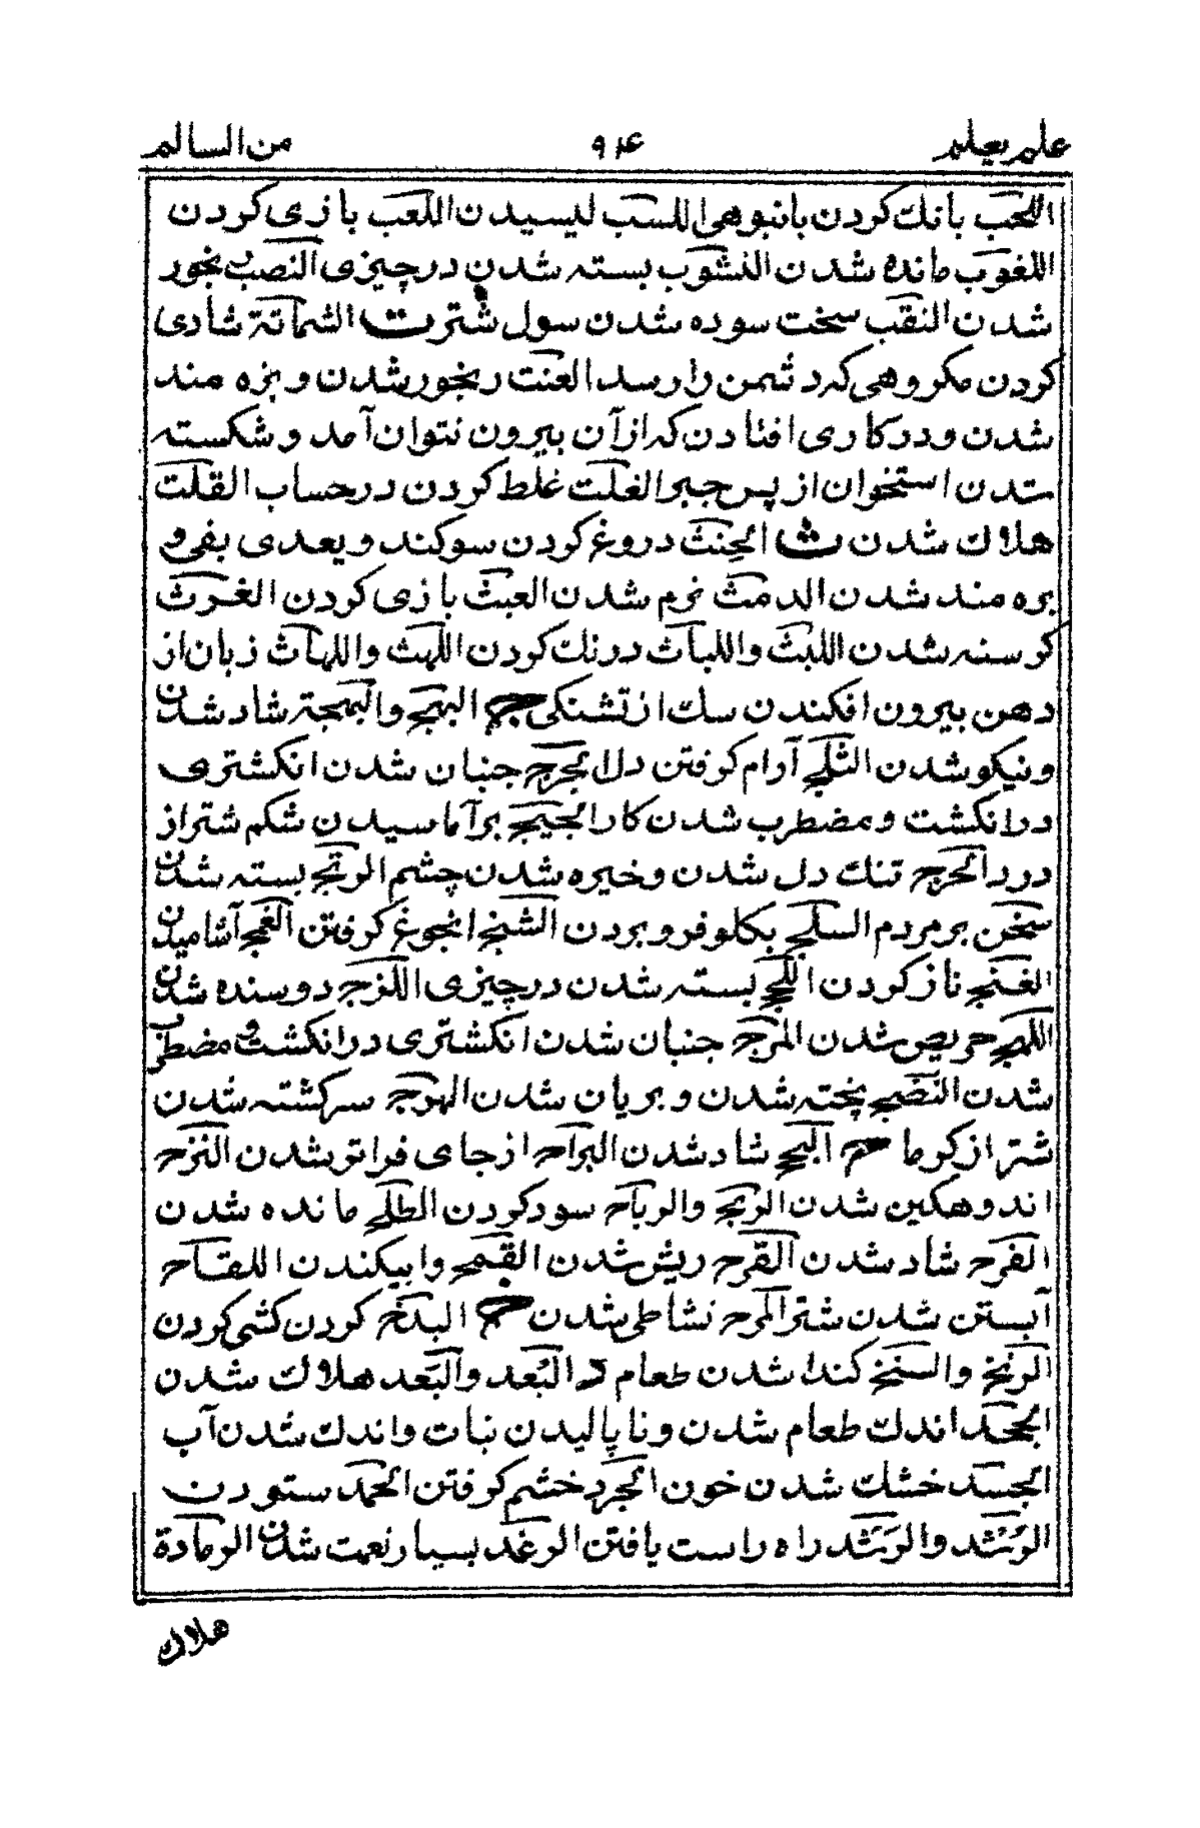 علم یعلم ۹۲۴ من السالم
اللجب بانك کردن بانبوهی اللسب لیسیدن اللعب بازی کردن
اللغوب مانده شدن النشوب بسته شدن درچیزی النصب رنجور
شدن النقب سخت سوده شدن سول شتر ت الشماتة شادی
کردن مکروهی که دشمن را رسد العنت رنجور شدن و بزه مند
شدن ودرکاری افتادن که ازآن بیرون نتوان آمد و شکسته
شدن استخوان از پس جبر الغلت غلط کردن درحساب القلت
هلاك شدن ث الحنث دروغ کردن سوکند و یعدی بفی و
بزه مند شدن الدمث نرم شدن العبث بازی کردن الغرث
کرسنه شدن اللبث واللباث درنك کردن اللهث واللهاث زبان از
دهن بیرون افکندن سك ازتشنکی ج البهج والبهجة شاد شدن
ونیکو شدن الثلج آرام کرفتن دل الجرج جنبان شدن انکشتری
درانکشت ومضطرب شدن کار الحبج برآماسیدن شکم شتراز
درد الحرج تنك دل شدن وخیره شدن چشم الرتج بسته شدن
سخن برمردم السلج بکلو فرو بردن الشنج انجوغ کرفتن الغمج آشامیدن
الغنج ناز کردن اللحج بسته شدن درچیزی اللزج دوسنده شدن
اللهج حریص شدن المرج جنبان شدن انکشتری درانکشت و مضطرب
شدن النضج پخته شدن و بریان شدن الهرج سرکشته شدن
شتر ازکرما ح البجح شاد شدن البراح ازجای فراتر شدن النزح
اندوهکین شدن الربح والرباح سود کردن الطلح مانده شدن
الفرح شاد شدن القرح ریش شدن القمح وابیکندن اللقاح
آبستن شدن شتر المرح نشاطی شدن خ البذخ کردن کشی کردن
الزنخ والسنخ کندا شدن طعام د البُعد والبَعد هلاك شدن
الجحد اندك طعام شدن ونا پالیدن نبات واندك شدن آب
الجسد خشك شدن خون الحرد خشم کرفتن الحمد ستودن
الرُشد والرَشد راه راست یافتن الرغد بسیار نعمت شدن الرمادة
هلاك